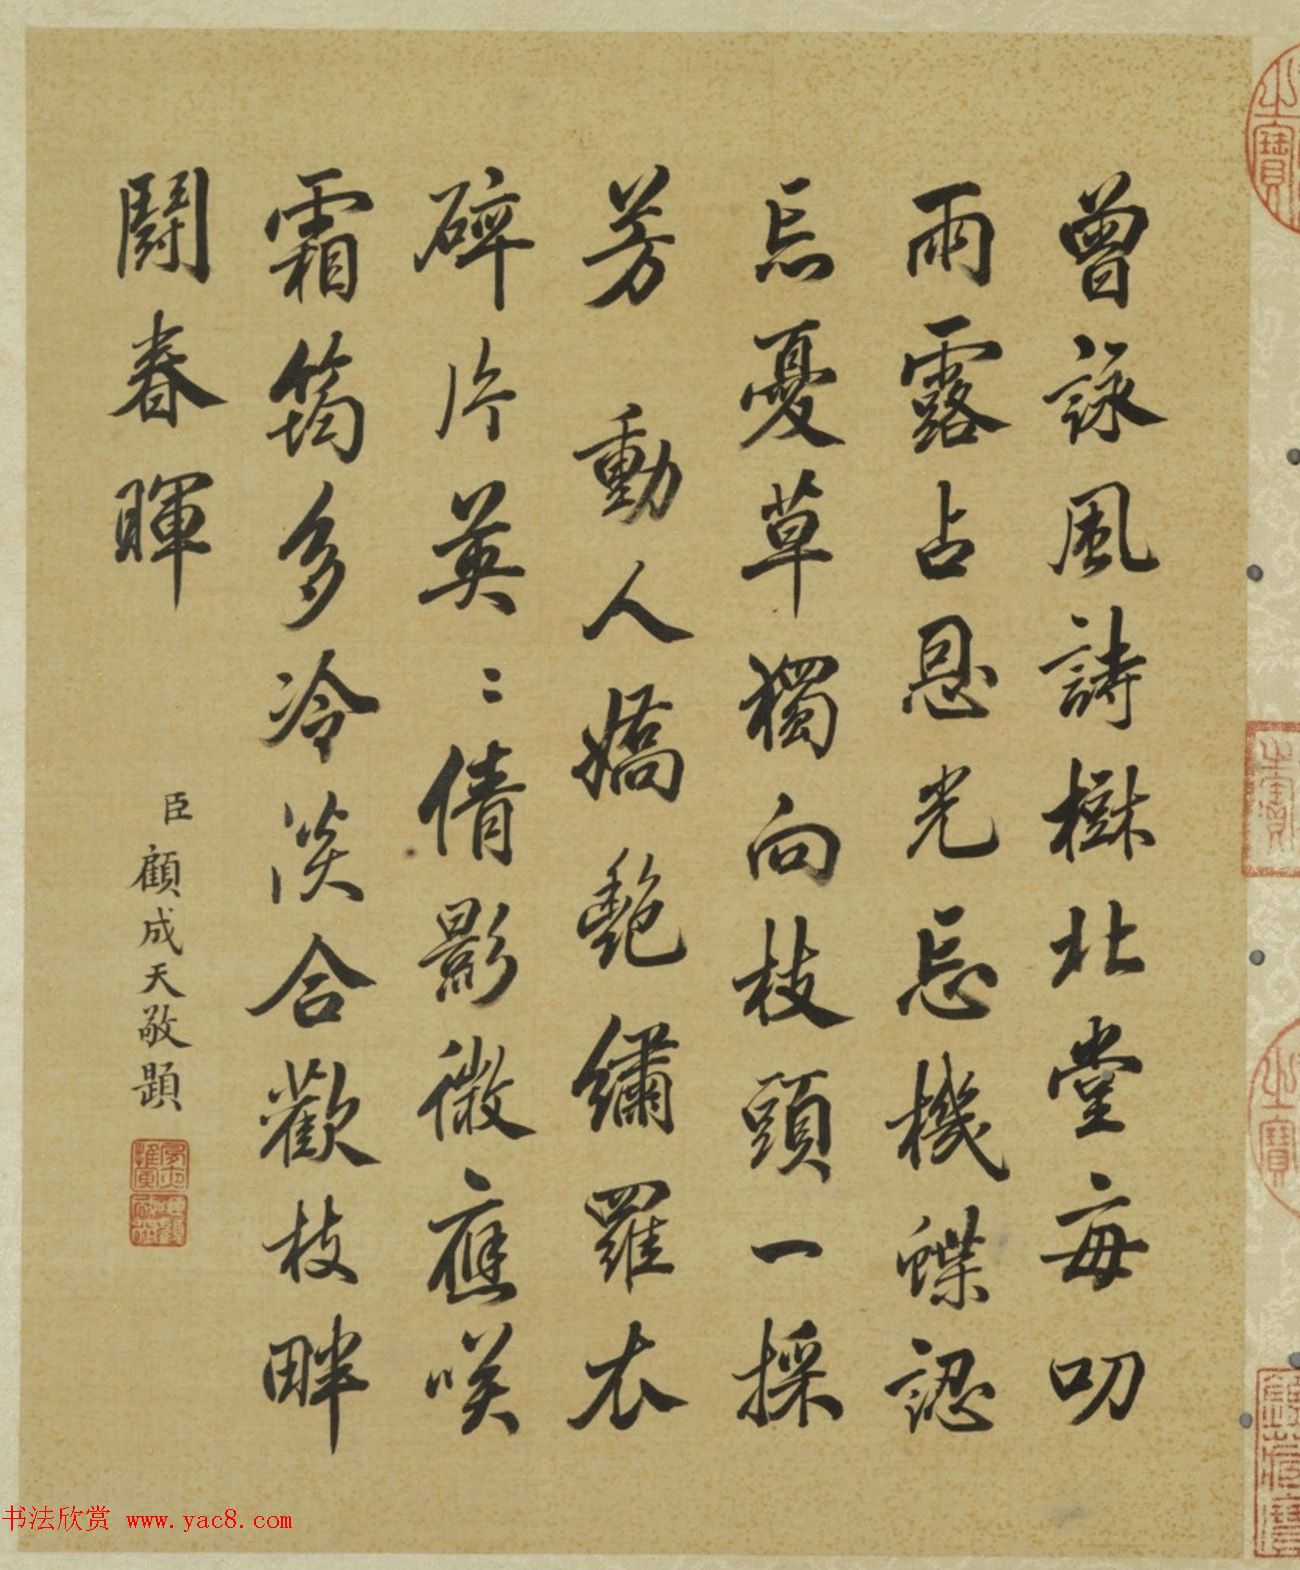 曾詠風詩樹北堂每叨
雨露占恩光忘機蝶認
忘憂草獨向枝頭一採
芳　動人嬌艷繡羅衣
碎片英〻倩影微應咲
霜筠多冷淡合歡枝畔
鬪春暉
臣顧成天敬題
书法欣赏 www.yac8.com